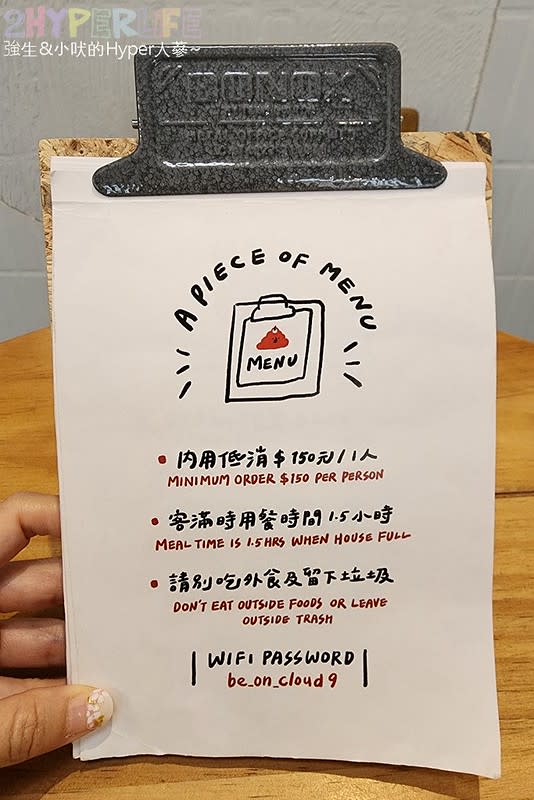 2HYPERLIFE
強生&小吠的Hyper人蔘~
A PIECE OF MENU
MENU
• 內用低消$150元/1人
MINIMUM ORDER $150 PER PERSON
• 客滿時用餐時間1.5小時
MEAL TIME IS 1.5HRS WHEN HOUSE FULL
• 請別吃外食及留下垃圾
DON'T EAT OUTSIDE FOODS OR LEAVE
OUTSIDE TRASH
WIFI PASSWORD
be_on_cloud9